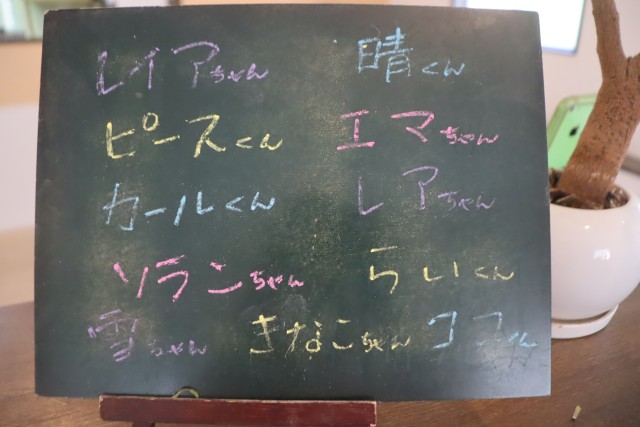 レイアちゃん 晴くん
ピースくん エマちゃん
カールくん レアちゃん
ソランちゃん らいくん
雪ちゃん きなこちゃん ココくん